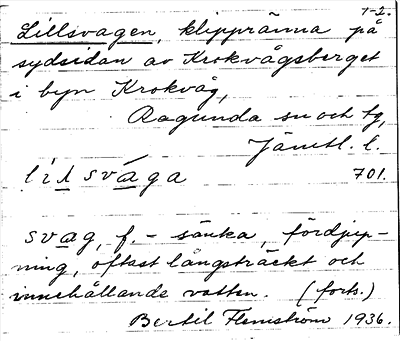 1-2.
Lillsvagen, klippränna på
sydsidan av Krokvågsberget
i byn Krokvåg,
Ragunda sn och tg,
Jämtl. l.
lílsvàga 701.
svag, f. - sänka, fördjup-
ning, oftast långsträckt och
innehållande vatten. (forts.)
Bertil Flemström 1936.